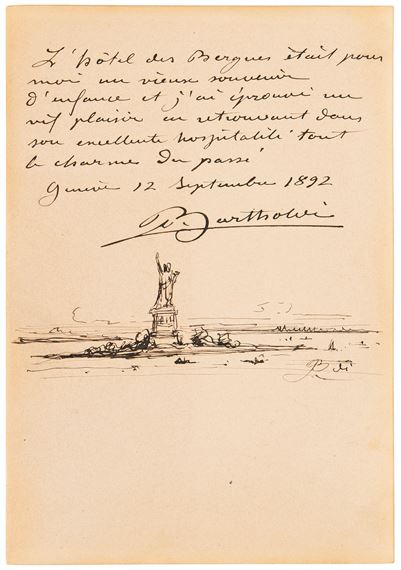 L'hôtel des Bergues était pour
moi un vieux souvenir
d'enfance et j'ai éprouvé un
vif plaisir en retrouvant dans
son excellente hospitalité tout
le charme du passé
Genève 12 Septembre 1892
Bartholdi